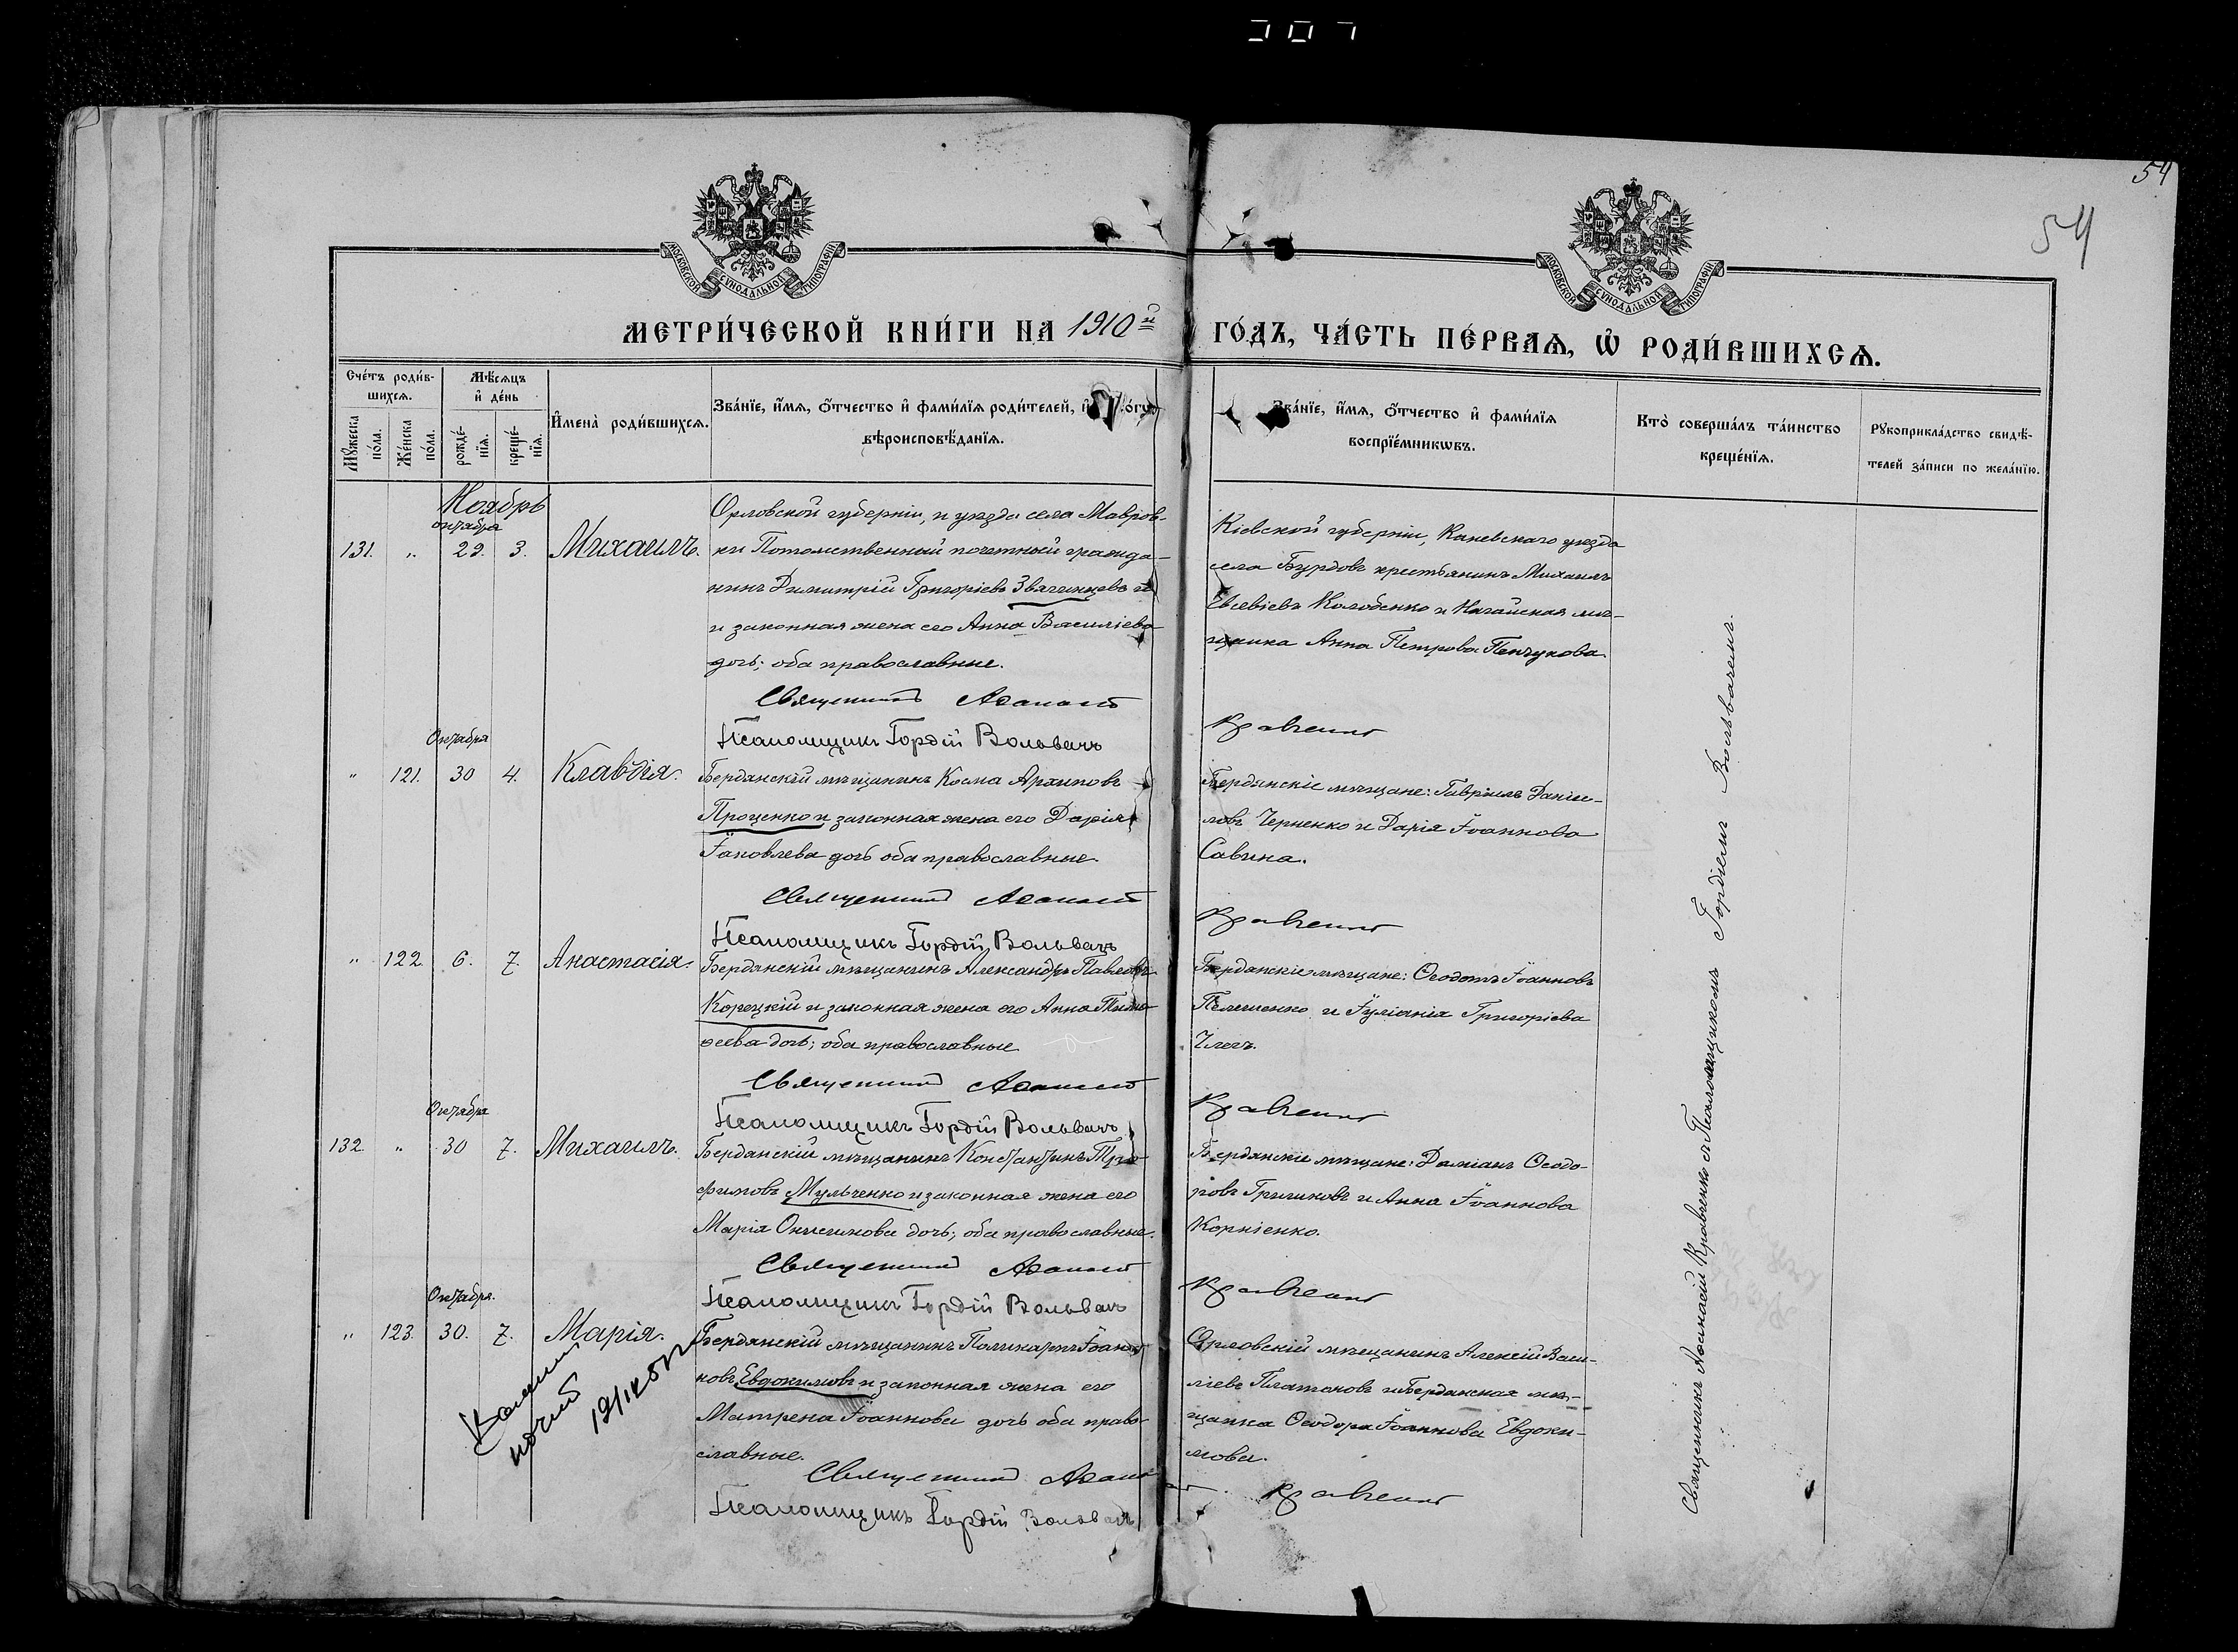 54
54
МОСКОВСКОЙ СѴНОДАЛЬНОЙ ТИПОГРАФІИ
МОСКОВСКОЙ СѴНОДАЛЬНОЙ ТИПОГРАФІИ
МЕТРИ́ЧЕСКОЙ КНИ́ГИ НА 1910й ГО́ДЪ, ЧА́СТЬ ПЕ́РВАѦ, Ѡ҆ РОДИ́ВШИХСѦ.
Сче́тъ роди́в-
шихсѧ.
Мѹ́жеска по́ла.
Же́нска по́ла.
Мѣ́сѧцъ
и҆ де́нь
рожде́-
нїѧ.
креще́-
нїѧ.
И҆мена̀ роди́вшихсѧ.
Зва́нїе, и҆́мѧ, ѻ҆́тчество и҆ фами́лїѧ роди́телей, и҆
вѣроисповѣ́данїѧ.
Зва́нїе, и҆́мѧ, ѻ҆́тчество и҆ фами́лїѧ
воспрїе́мникѡвъ.
Кто̀ соверша́лъ та́инство
креще́нїѧ.
Рѹкоприкла́дство свидѣ́-
телей за́писи по жела́нїю.
Ноябрь
октября
131. „ 29. 3. Михаилъ.
Орловской губерніи, и уѣзда села Мавров-
ки Потомственный почетный гражда-
нинъ Димитрій Григоріевъ Звягинцевъ
и законная жена его Анна Василіева
дочь; оба православные.
Священникъ Аѳанасій Кравченко
Псаломщикъ Гордій Вольвачъ
Кіевской губерніи, Каневскаго уѣзда
села Бурдовъ крестьянинъ Михаилъ
Евсевіевъ Колобенко и Ногайская мѣ-
щанка Анна Петрова Пенчукова.
Октября
„ 121. 30 4. Клавдія.
Бердянскій мѣщанинъ Косма Архиповъ
Проценко и законная жена его Дарія
Іаковлева дочь оба православные.
Священникъ Аѳанасій Кравченко
Псаломщикъ Гордій Вольвачъ
Бердянскіе мѣщане: Гавріилъ Даніи-
ловъ Черненко и Дарія Іоаннова
Савина.
„ 122. 6. 7. Анастасія.
Бердянскій мѣщанинъ Александръ Павловъ
Корецкій и законная жена его Анна Тимо-
ѳеева дочь; оба православные
Священникъ Аѳанасій Кравченко
Псаломщикъ Гордій Вольвачъ
Бердянскіе мѣщане: Ѳеодотъ Іоанновъ
и Іуліанія Григоріева
Октября
132. „ 30 7. Михаилъ.
Бердянскій мѣщанинъ Константинъ Тро-
фимовъ Мульченко и законная жена его
Марія Онисимова дочь; оба православные.
Священникъ Аѳанасій Кравченко
Псаломщикъ Гордій Вольвачъ
Бердянскіе мѣщане: Даміанъ Ѳеодо-
ровъ и Анна Іоаннова
Корніенко.
Октября.
„ 123. 30. 7. Марія.
Бердянскій мѣщанинъ Поликарпъ Іоан-
новъ Евдокимовъ и законная жена его
Матрена Іоаннова дочь оба право-
славные.
Священникъ Аѳанасій Кравченко
Псаломщикъ Гордій Вольвачъ
Орловскій мѣщанинъ Алексій Васи-
ліевъ Платоновъ и Бердянская мѣ-
щанка Ѳеодора Іоаннова Евдоки-
мова.
Священникъ Аѳанасій Кравченко съ Псаломщикомъ Гордіемъ Вольвачемъ.